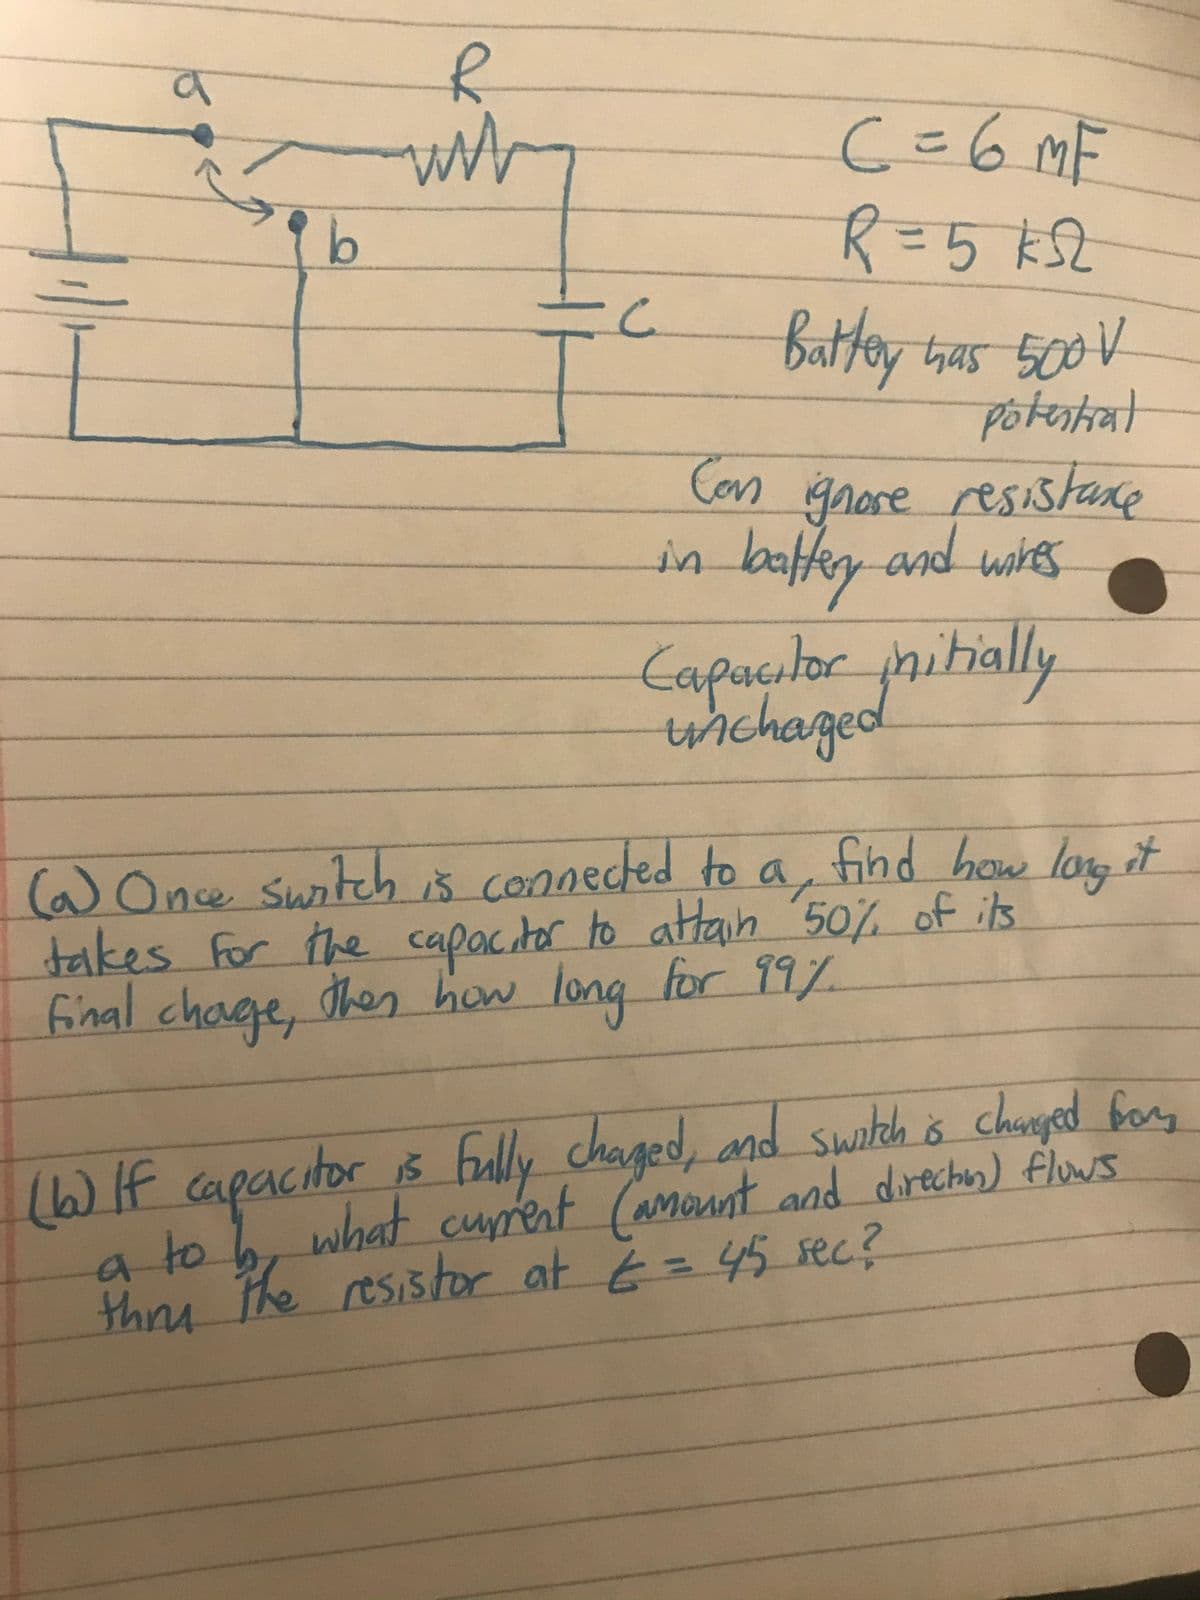 a
R
b
C
C = 6 mF
R = 5 kΩ
Battey has 500 V
potential
Can ignore resistance
in battery and wires
Capacitor initially
unchaged
(a) Once switch is connected to a, find how long it
takes for the capacitor to attain 50% of its
final chage, then how long for 99%.
(b) If capacitor is fully chaged, and switch is changed from
a to b, what current (amount and direction) flows
thru the resistor at t = 45 sec?